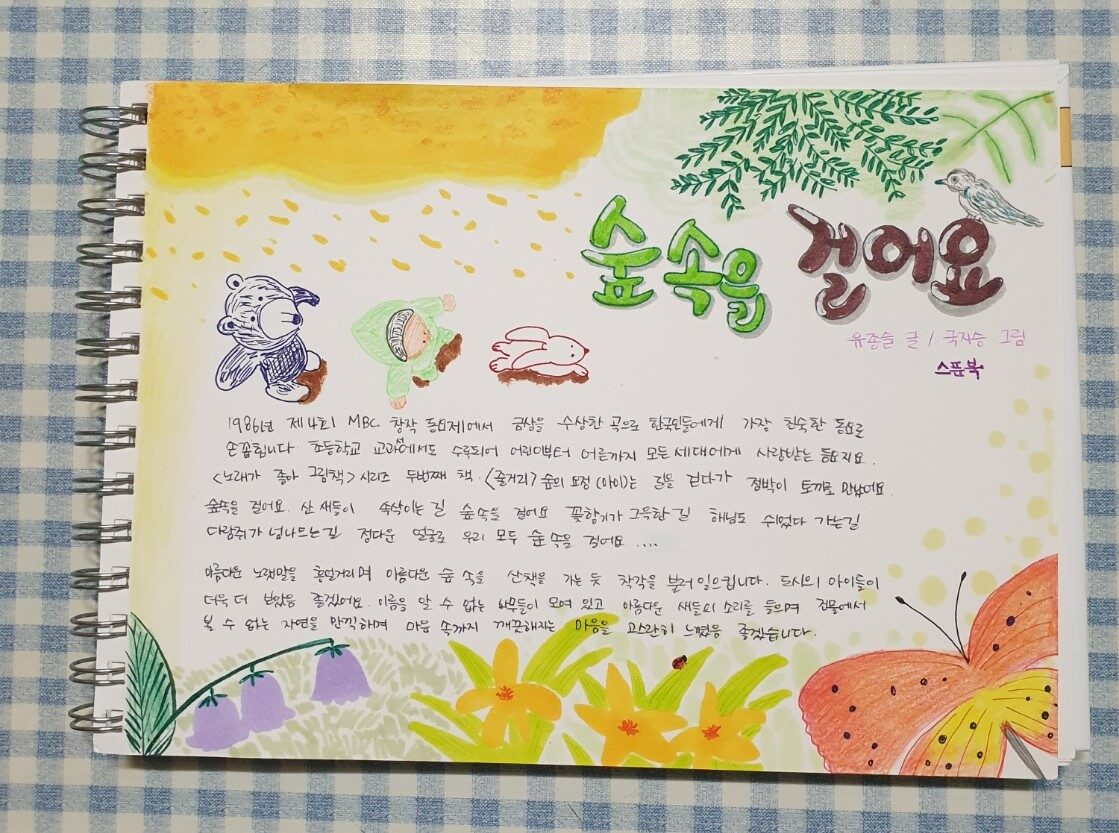 숲 속을 걸어요
유종슬 글 / 국지승 그림
스푼북
1986년 제4회 MBC 창작 동요제에서 금상을 수상한 곡으로 한국인들에게 가장 친숙한 동요로
손꼽힙니다. 초등학교 교과서에서도 수록되어 어린이부터 어른까지 모든 세대에게 사랑받는 동요지요.
<노래가 좋아 그림책> 시리즈 두번째 책. <줄거리> 숲의 요정 (아이)는 길을 걷다가 점박이 토끼를 만났어요.
숲속을 걸어요. 산새들이 속삭이는 길 숲속을 걸어요 꽃향기가 그윽한 길 해님도 쉬었다 가는길
다람쥐가 넘나드는길 정다운 얼굴로 우리 모두 숲속을 걸어요 ....
아름다운 노랫말을 흥얼거리며 아름다운 숲 속을 산책을 가는 듯 착각을 불러일으킵니다. 도시의 아이들이
더욱 더 봤음 좋겠어요. 이름을 알 수 없는 나무들이 모여 있고 아름다운 새들의 소리를 들으며 건물에서
볼 수 없는 자연을 만끽하며 마음 속까지 깨끗해지는 마음을 고스란히 느꼈음 좋겠습니다.